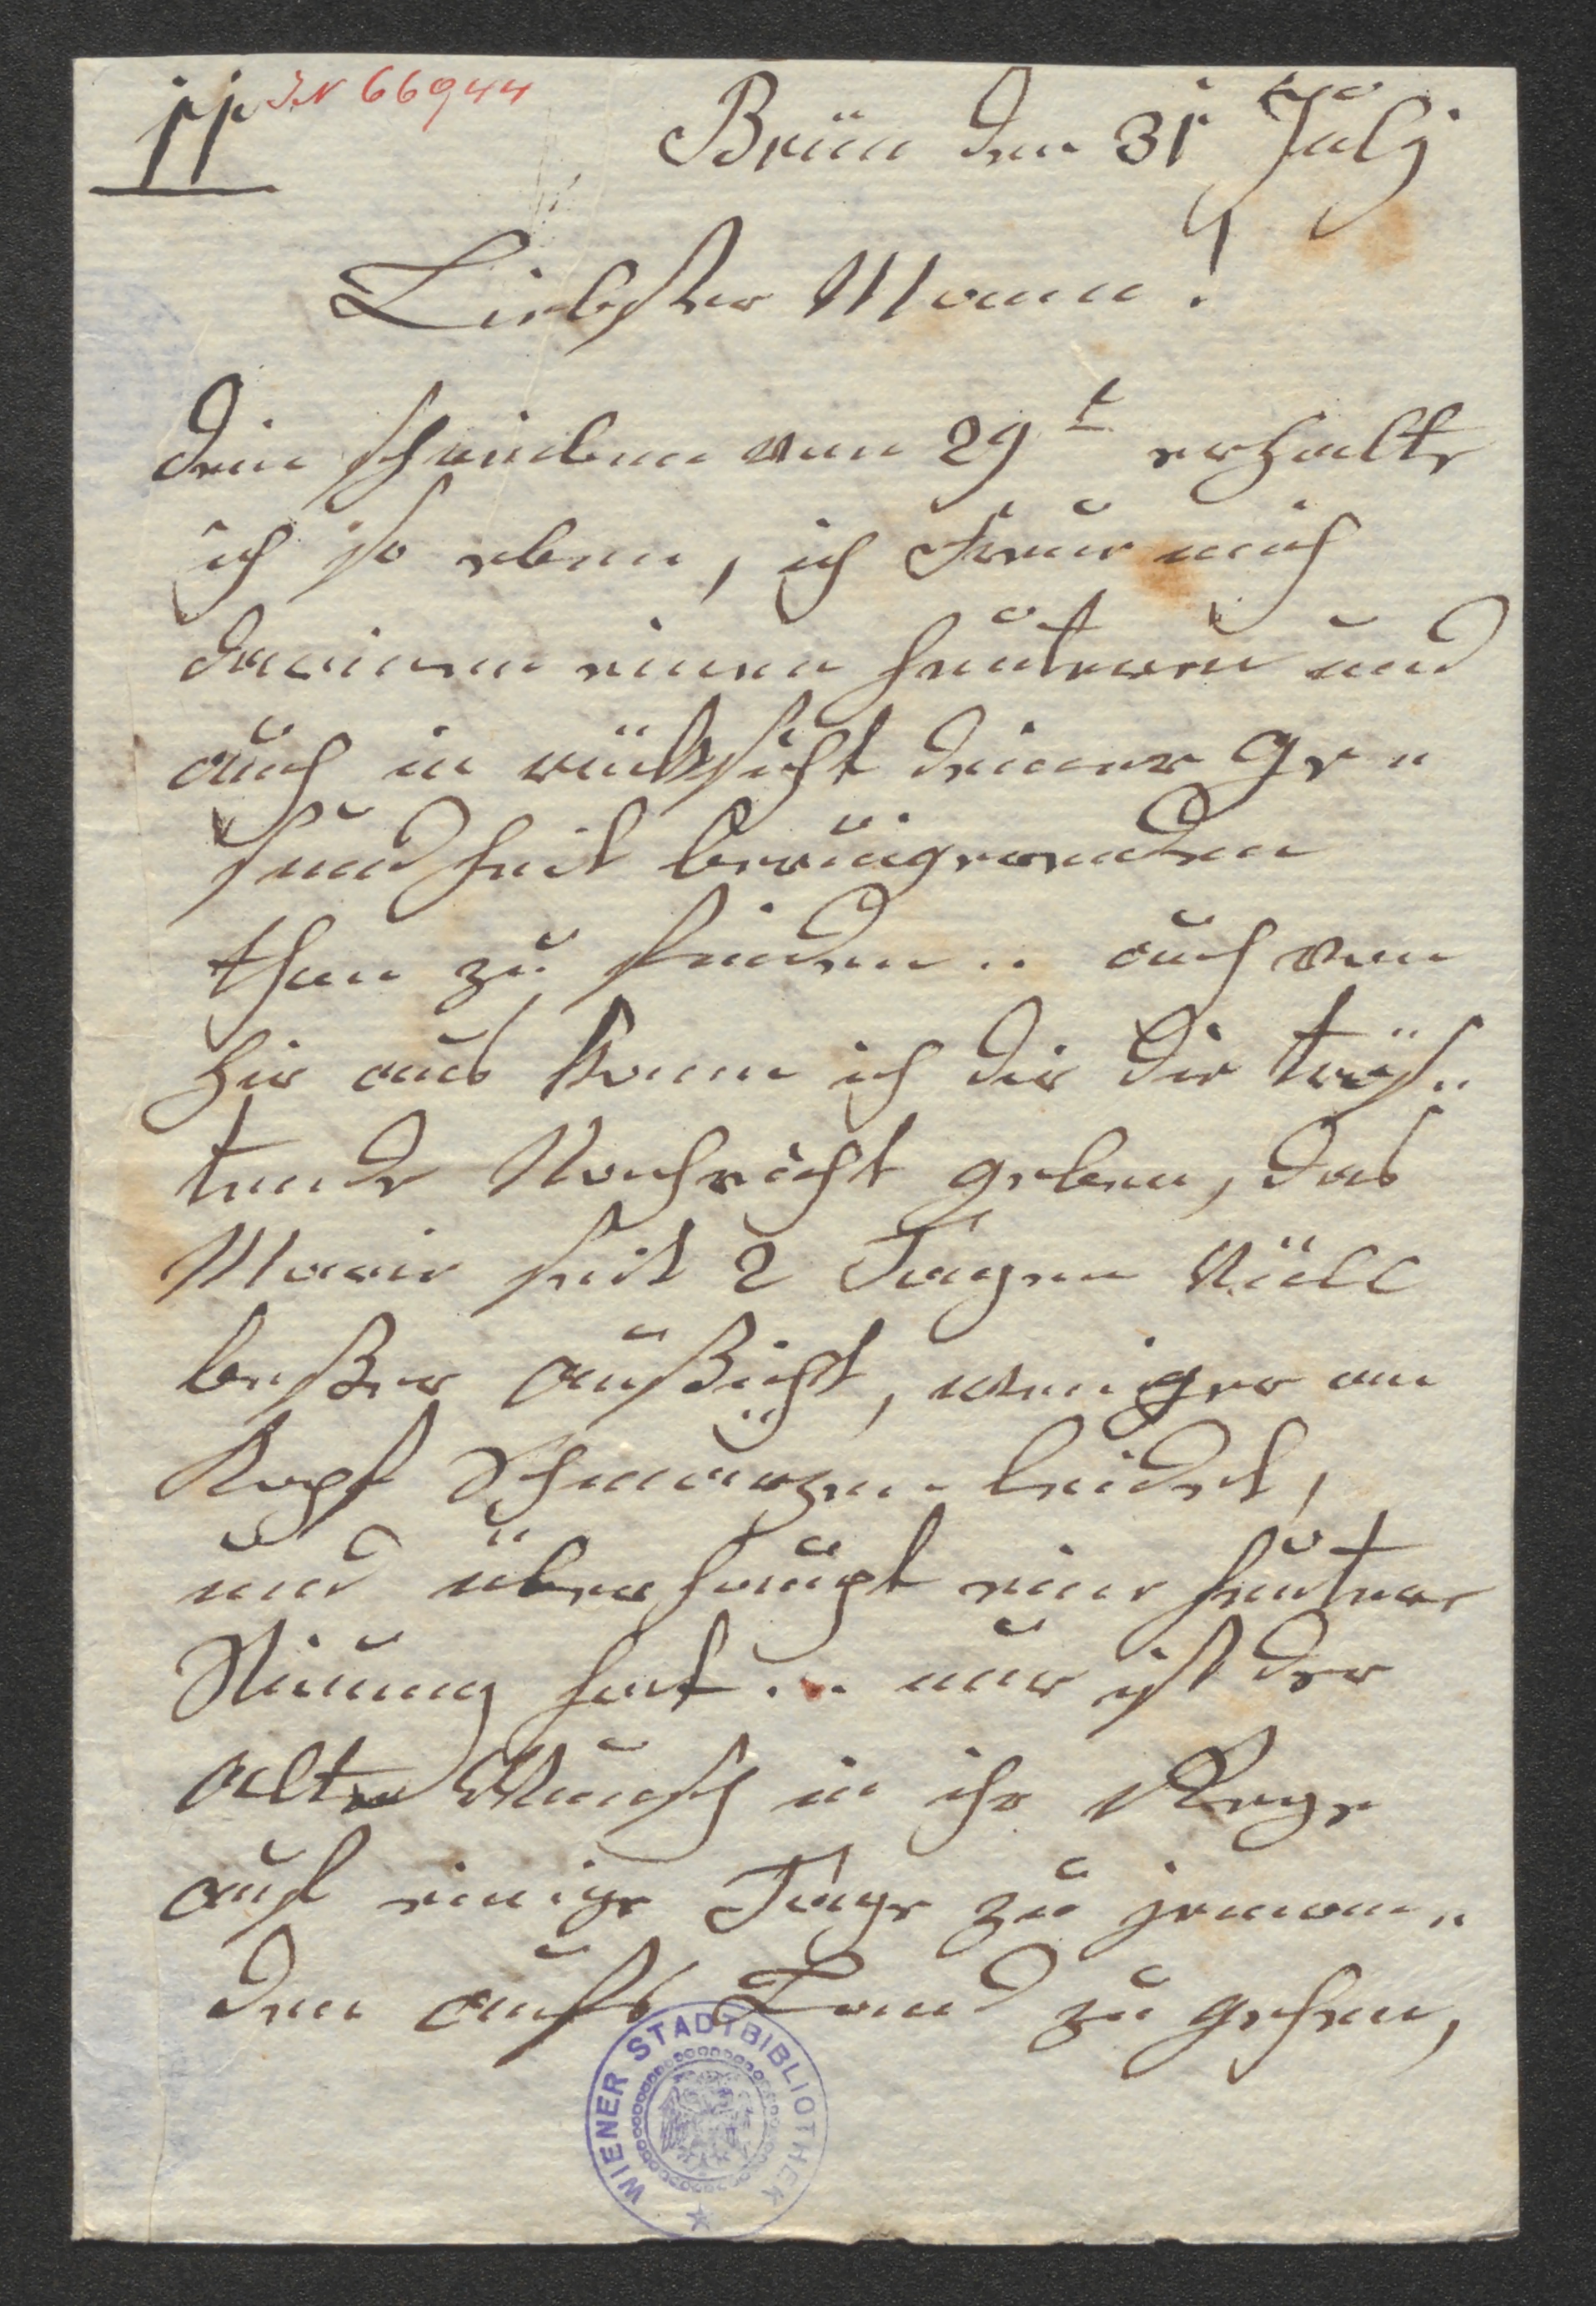 pp
IN 66944
Brün den 31t Julÿ
Liebster Mann!
dein schreiben vom 29t erhalte
ich so eben, ich Freue mich
darinen einen heuteren und
auch in rüksicht deiner Ge„
sundheit berüigenden
thon zu finden.. auch von
hir aus kann ich dir die trös„
tende Nachricht geben, das
Marie seit 2 Tagen Viell
beßer außicht, weniger an
Kopf Schmerzen leidet,
und überhaupt eine heutere
Stimung hat ... nur ist der
alte Wunsch in ihr Rege
auf einige Tage zu jeman„
den aufs Land zu gehen,
WIENER STADTBIBLIOTHEK